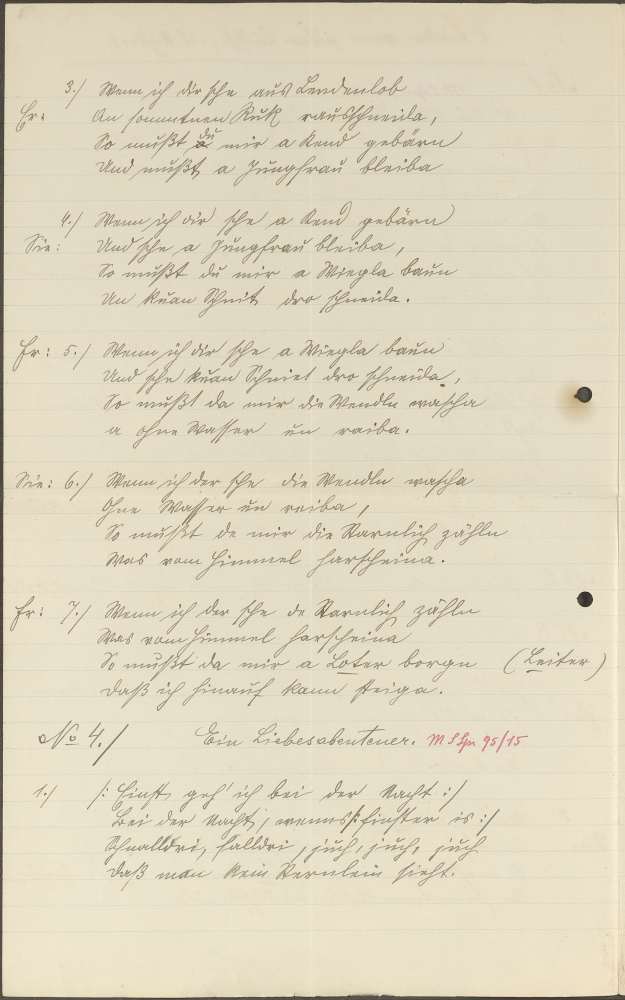 3./ Wenn ich dir sche aus Lendenlob
Er: An sommtnen Ruk rausschneida,
So mußt du mir a Kend gebärn
Und mußt a Jungfrau bleiba
4./ Wenn ich dir sche a Kend gebärn
Sie: Und sche a Jungfrau bleiba,
So mußt du mir a Wiegla baun
An kuan Schnit dro schneida.
Er: 5./ Wenn ich dir sche a Wiegla baun
Und sche kuan Schniet dro schneida,
So mußt da mir die Wendln wascha
a ohne Wasser un reiba.
Sie: 6./ Wenn ich der sche die Wendln wascha
Ohne Wasser un reiba,
So mußt de mir die Starnlich zähln
Was vom Himmel harscheina.
Er: 7./ Wenn ich der sche de Starnlich zähln
Was vom Himmel harscheina
So mußt da mir a Loter borgn (Leiter)
Daß ich hinauf kann steiga.
No 4./ Ein Liebesabenteuer. M S Spr 95/15
1./ /: Einst geh' ich bei der Nacht :/
Bei der Nacht, wenns /: finster is :/
Schnalldri, falldri, juch, juch, juch
Daß man kein Sternlein sieht.